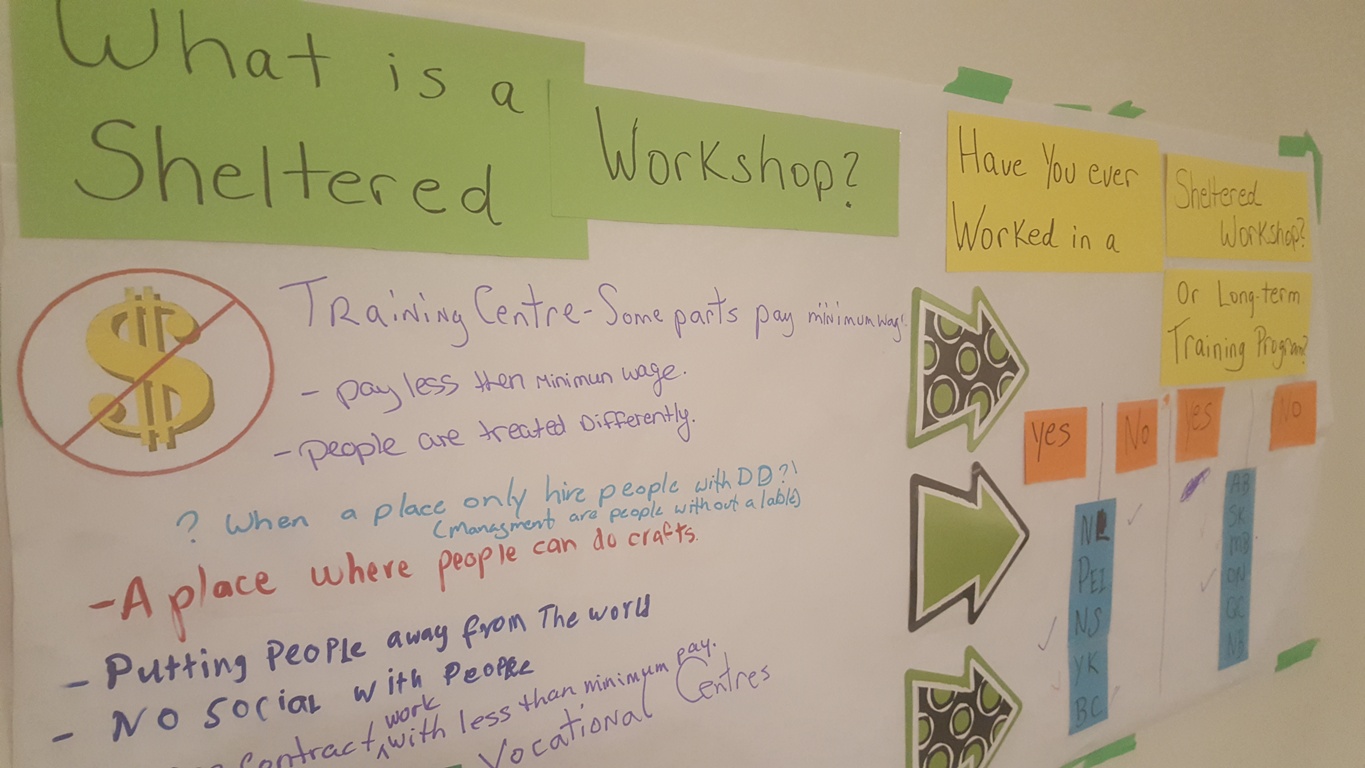 What is a
Sheltered
Workshop?
TRaining Centre-Some parts pay minimum wag!
- pay less then Minimun wage.
- people are treated Differently.
? When a place only hire people with DD?!
(Managment are people without a lable)
- A place where people can do crafts.
- Putting People away from The world
- No social with People
contract work with less than minimum pay.
Vocational Centres
Have You ever
Worked in a
Sheltered
Workshop?
Or Long-term
Training Program?
Yes No Yes No
NL
PEI
NS
YK
BC
AB
SK
MB
ON
QC
NB